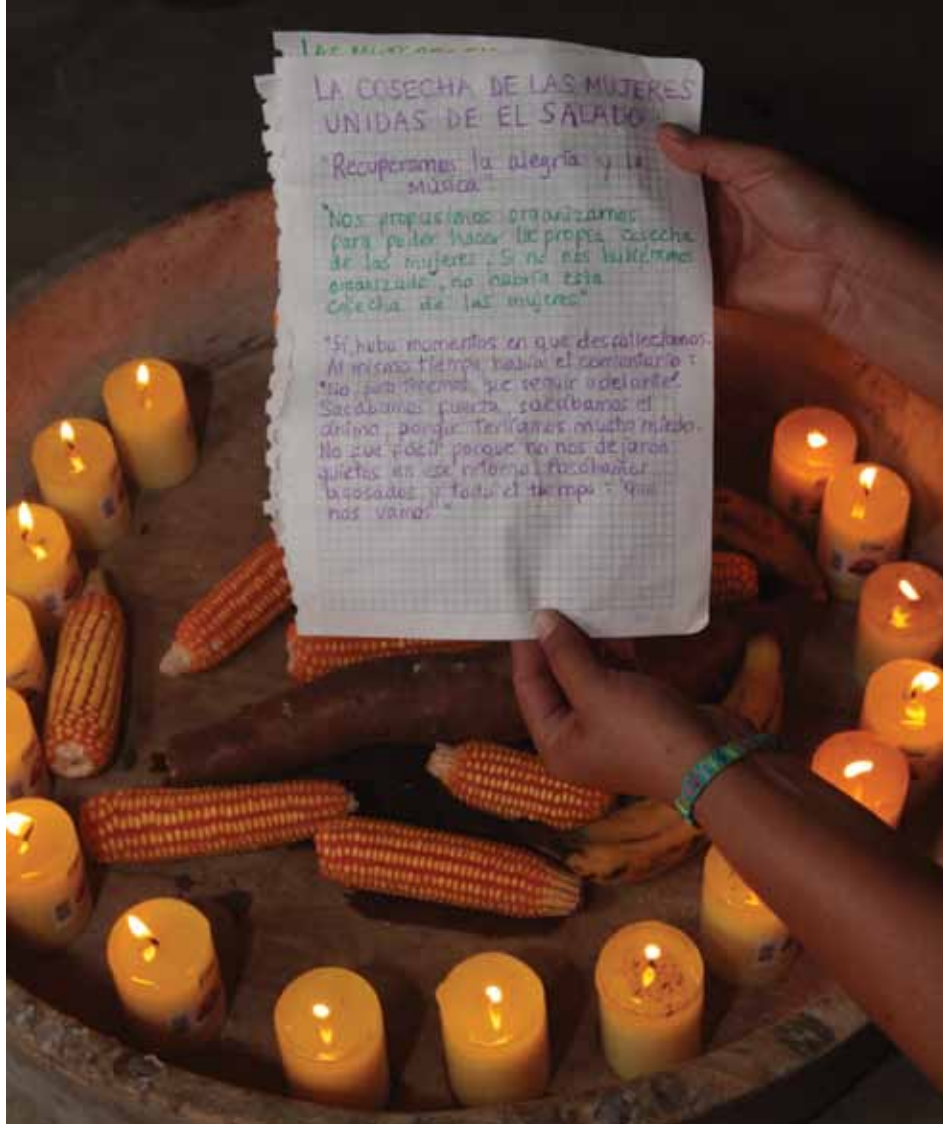 LA COSECHA DE LAS MUJERES
UNIDAS DE EL SALADO
"Recuperamos la alegría y la
música"
"Nos propusimos organizarnos
para poder hacer la propia cosecha
de las mujeres. Si no nos hubiéramos
organizado, no habría esta
cosecha de las mujeres"
"Sí, hubo momentos en que desfallecíamos.
Al mismo tiempo había el comentario:
"No, pero tenemos que seguir adelante".
Sacábamos fuerza, sacábamos el
ánimo, porque teníamos mucho miedo.
No fue fácil porque no nos dejaron
quietos en ese retorno.
acosados y todo el tiempo: "que
nos vamos"